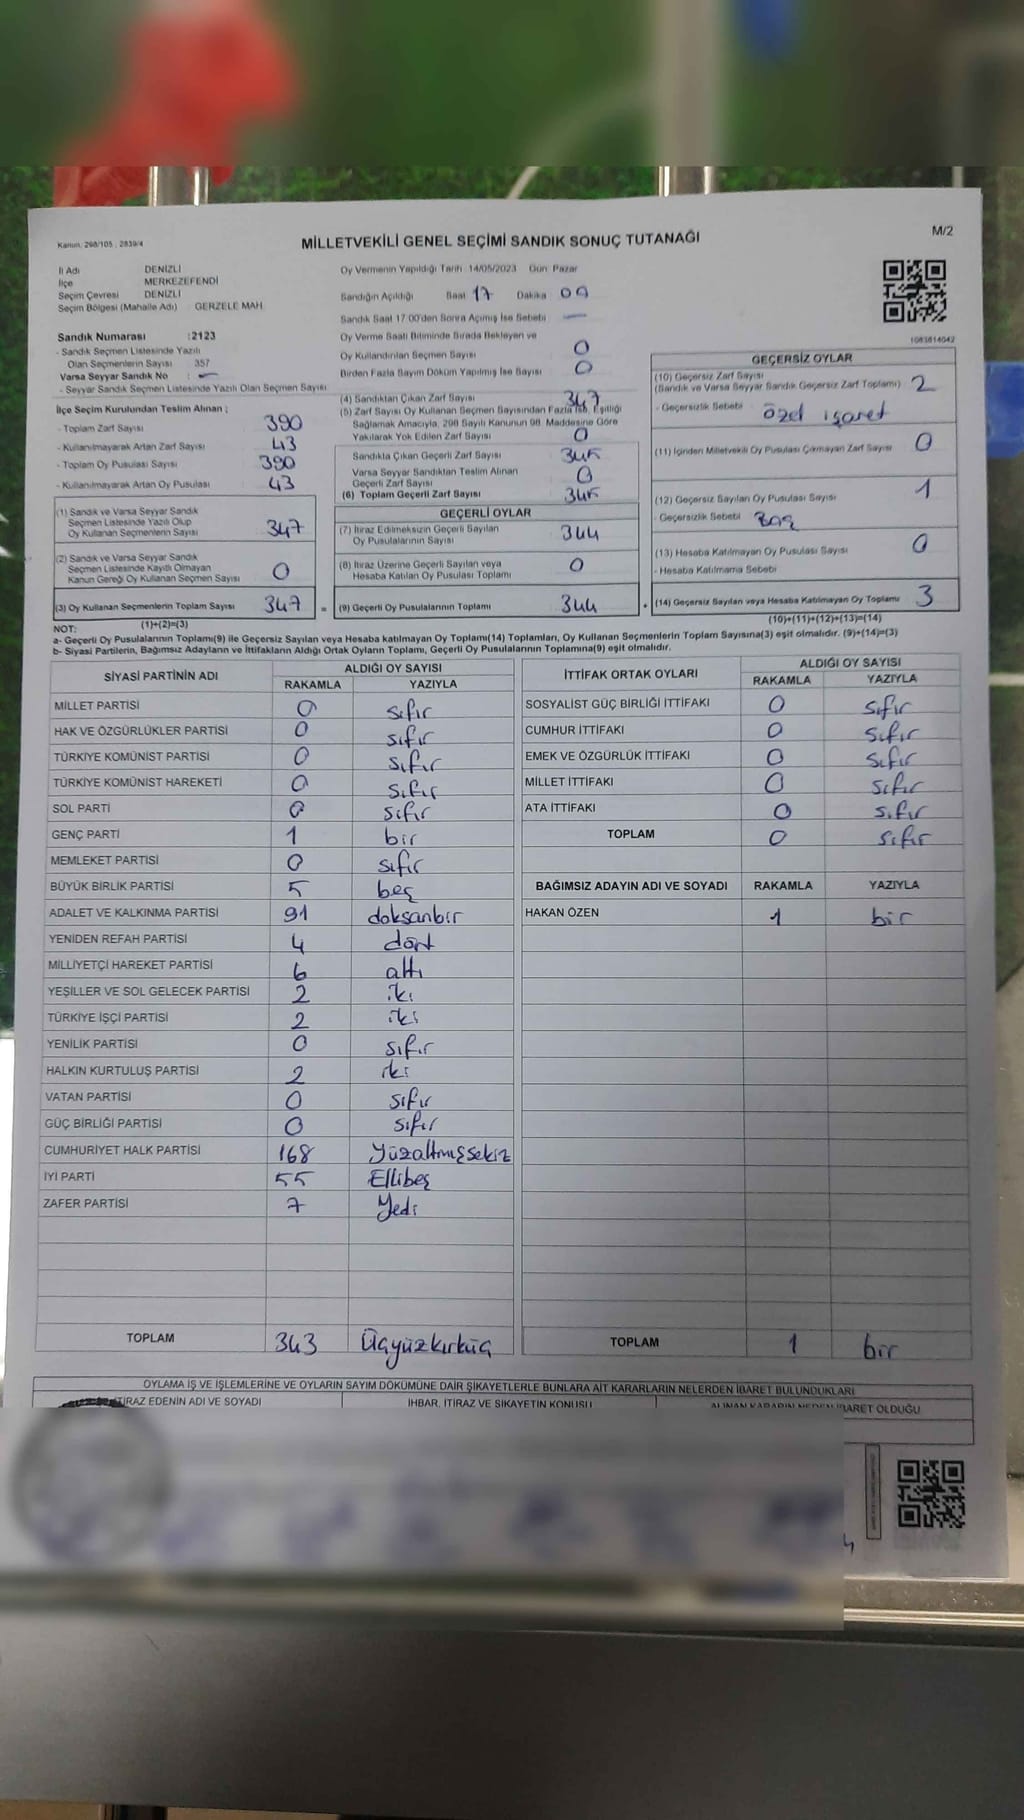 Kanun: 298/105 , 2839/4
MİLLETVEKİLİ GENEL SEÇİMİ SANDIK SONUÇ TUTANAĞI
M/2
İl Adı DENİZLİ
İlçe MERKEZEFENDİ
Seçim Çevresi DENİZLİ
Seçim Bölgesi (Mahalle Adı) GERZELE MAH.
Sandık Numarası :2123
- Sandık Seçmen Listesinde Yazılı
Olan Seçmenlerin Sayısı 357
Varsa Seyyar Sandık No : -
- Seyyar Sandık Seçmen Listesinde Yazılı Olan Seçmen Sayısı:
İlçe Seçim Kurulundan Teslim Alınan ;
- Toplam Zarf Sayısı 390
- Kullanılmayarak Artan Zarf Sayısı 43
- Toplam Oy Pusulası Sayısı 390
- Kullanılmayarak Artan Oy Pusulası 43
(1) Sandık ve Varsa Seyyar Sandık
Seçmen Listesinde Yazılı Olup
Oy Kullanan Seçmenlerin Sayısı 347
(2) Sandık ve Varsa Seyyar Sandık
Seçmen Listesinde Kayıtlı Olmayan
Kanun Gereği Oy Kullanan Seçmen Sayısı 0
(3) Oy Kullanan Seçmenlerin Toplam Sayısı 347 =
(1)+(2)=(3)
Oy Vermenin Yapıldığı Tarih: 14/05/2023 Gün: Pazar
Sandığın Açıldığı Saat 17 Dakika 09
Sandık Saat 17:00'den Sonra Açılmış İse Sebebi : —
Oy Verme Saati Bitiminde Sırada Bekleyen ve
Oy Kullandırılan Seçmen Sayısı 0
Birden Fazla Sayım Döküm Yapılmış İse Sayısı : 0
(4) Sandıktan Çıkan Zarf Sayısı 347
(5) Zarf Sayısı Oy Kullanan Seçmen Sayısından Fazla İse, Eşitliği
Sağlamak Amacıyla, 298 Sayılı Kanunun 98. Maddesine Göre
Yakılarak Yok Edilen Zarf Sayısı 0
Sandıkta Çıkan Geçerli Zarf Sayısı 345
Varsa Seyyar Sandıktan Teslim Alınan
Geçerli Zarf Sayısı 0
(6) Toplam Geçerli Zarf Sayısı 345
GEÇERLİ OYLAR
(7) İtiraz Edilmeksizin Geçerli Sayılan
Oy Pusulalarının Sayısı 344
(8) İtiraz Üzerine Geçerli Sayılan veya
Hesaba Katılan Oy Pusulası Toplamı 0
(9) Geçerli Oy Pusulalarının Toplamı 344 +
1083814042
GEÇERSİZ OYLAR
(10) Geçersiz Zarf Sayısı
(Sandık ve Varsa Seyyar Sandık Geçersiz Zarf Toplamı) 2
- Geçersizlik Sebebi : özel işaret
(11) İçinden Milletvekili Oy Pusulası Çıkmayan Zarf Sayısı 0
(12) Geçersiz Sayılan Oy Pusulası Sayısı 1
- Geçersizlik Sebebi Boş
(13) Hesaba Katılmayan Oy Pusulası Sayısı 0
- Hesaba Katılmama Sebebi
(14) Geçersiz Sayılan veya Hesaba Katılmayan Oy Toplamı 3
(10)+(11)+(12)+(13)=(14)
NOT:
a- Geçerli Oy Pusulalarının Toplamı(9) ile Geçersiz Sayılan veya Hesaba katılmayan Oy Toplamı(14) Toplamları, Oy Kullanan Seçmenlerin Toplam Sayısına(3) eşit olmalıdır. (9)+(14)=(3)
b- Siyasi Partilerin, Bağımsız Adayların ve İttifakların Aldığı Oyların Toplamı, Geçerli Oy Pusulalarının Toplamına(9) eşit olmalıdır.
SİYASİ PARTİNİN ADI ALDIĞI OY SAYISI
RAKAMLA YAZIYLA
MİLLET PARTİSİ 0 sıfır
HAK VE ÖZGÜRLÜKLER PARTİSİ 0 sıfır
TÜRKİYE KOMÜNİST PARTİSİ 0 sıfır
TÜRKİYE KOMÜNİST HAREKETİ 0 sıfır
SOL PARTİ 0 sıfır
GENÇ PARTİ 1 bir
MEMLEKET PARTİSİ 0 sıfır
BÜYÜK BİRLİK PARTİSİ 5 beş
ADALET VE KALKINMA PARTİSİ 91 doksanbir
YENİDEN REFAH PARTİSİ 4 dört
MİLLİYETÇİ HAREKET PARTİSİ 6 altı
YEŞİLLER VE SOL GELECEK PARTİSİ 2 iki
TÜRKİYE İŞÇİ PARTİSİ 2 iki
YENİLİK PARTİSİ 0 sıfır
HALKIN KURTULUŞ PARTİSİ 2 iki
VATAN PARTİSİ 0 sıfır
GÜÇ BİRLİĞİ PARTİSİ 0 sıfır
CUMHURİYET HALK PARTİSİ 168 Yüzaltmışsekiz
İYİ PARTİ 55 Ellibeş
ZAFER PARTİSİ 7 Yedi
TOPLAM 343 Üçyüzkırküç
İTTİFAK ORTAK OYLARI ALDIĞI OY SAYISI
RAKAMLA YAZIYLA
SOSYALİST GÜÇ BİRLİĞİ İTTİFAKI 0 sıfır
CUMHUR İTTİFAKI 0 sıfır
EMEK VE ÖZGÜRLÜK İTTİFAKI 0 sıfır
MİLLET İTTİFAKI 0 sıfır
ATA İTTİFAKI 0 sıfır
TOPLAM 0 sıfır
BAĞIMSIZ ADAYIN ADI VE SOYADI RAKAMLA YAZIYLA
HAKAN ÖZEN 1 bir
TOPLAM 1 bir
OYLAMA İŞ VE İŞLEMLERİNE VE OYLARIN SAYIM DÖKÜMÜNE DAİR ŞİKAYETLERLE BUNLARA AİT KARARLARIN NELERDEN İBARET BULUNDUKLARI
İTİRAZ EDENİN ADI VE SOYADI İHBAR, İTİRAZ VE ŞİKAYETİN KONUSU ALINAN KARARIN NEDEN İBARET OLDUĞU